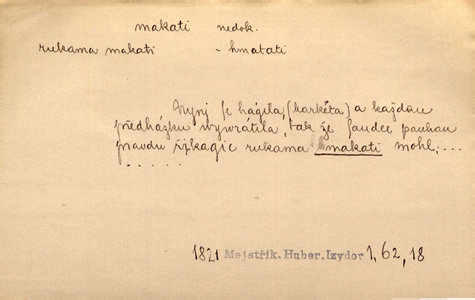 makati nedok.
rukama makati - hmatati
Nynj se hágila, (Markéta) a každau
předházku wywrátila, tak že Saudce pauhau
prawdu řjkagjc rukama makati mohl; ...
. . . . . .
1821 Mejstřík. Huber. Izydor 1, 62, 18